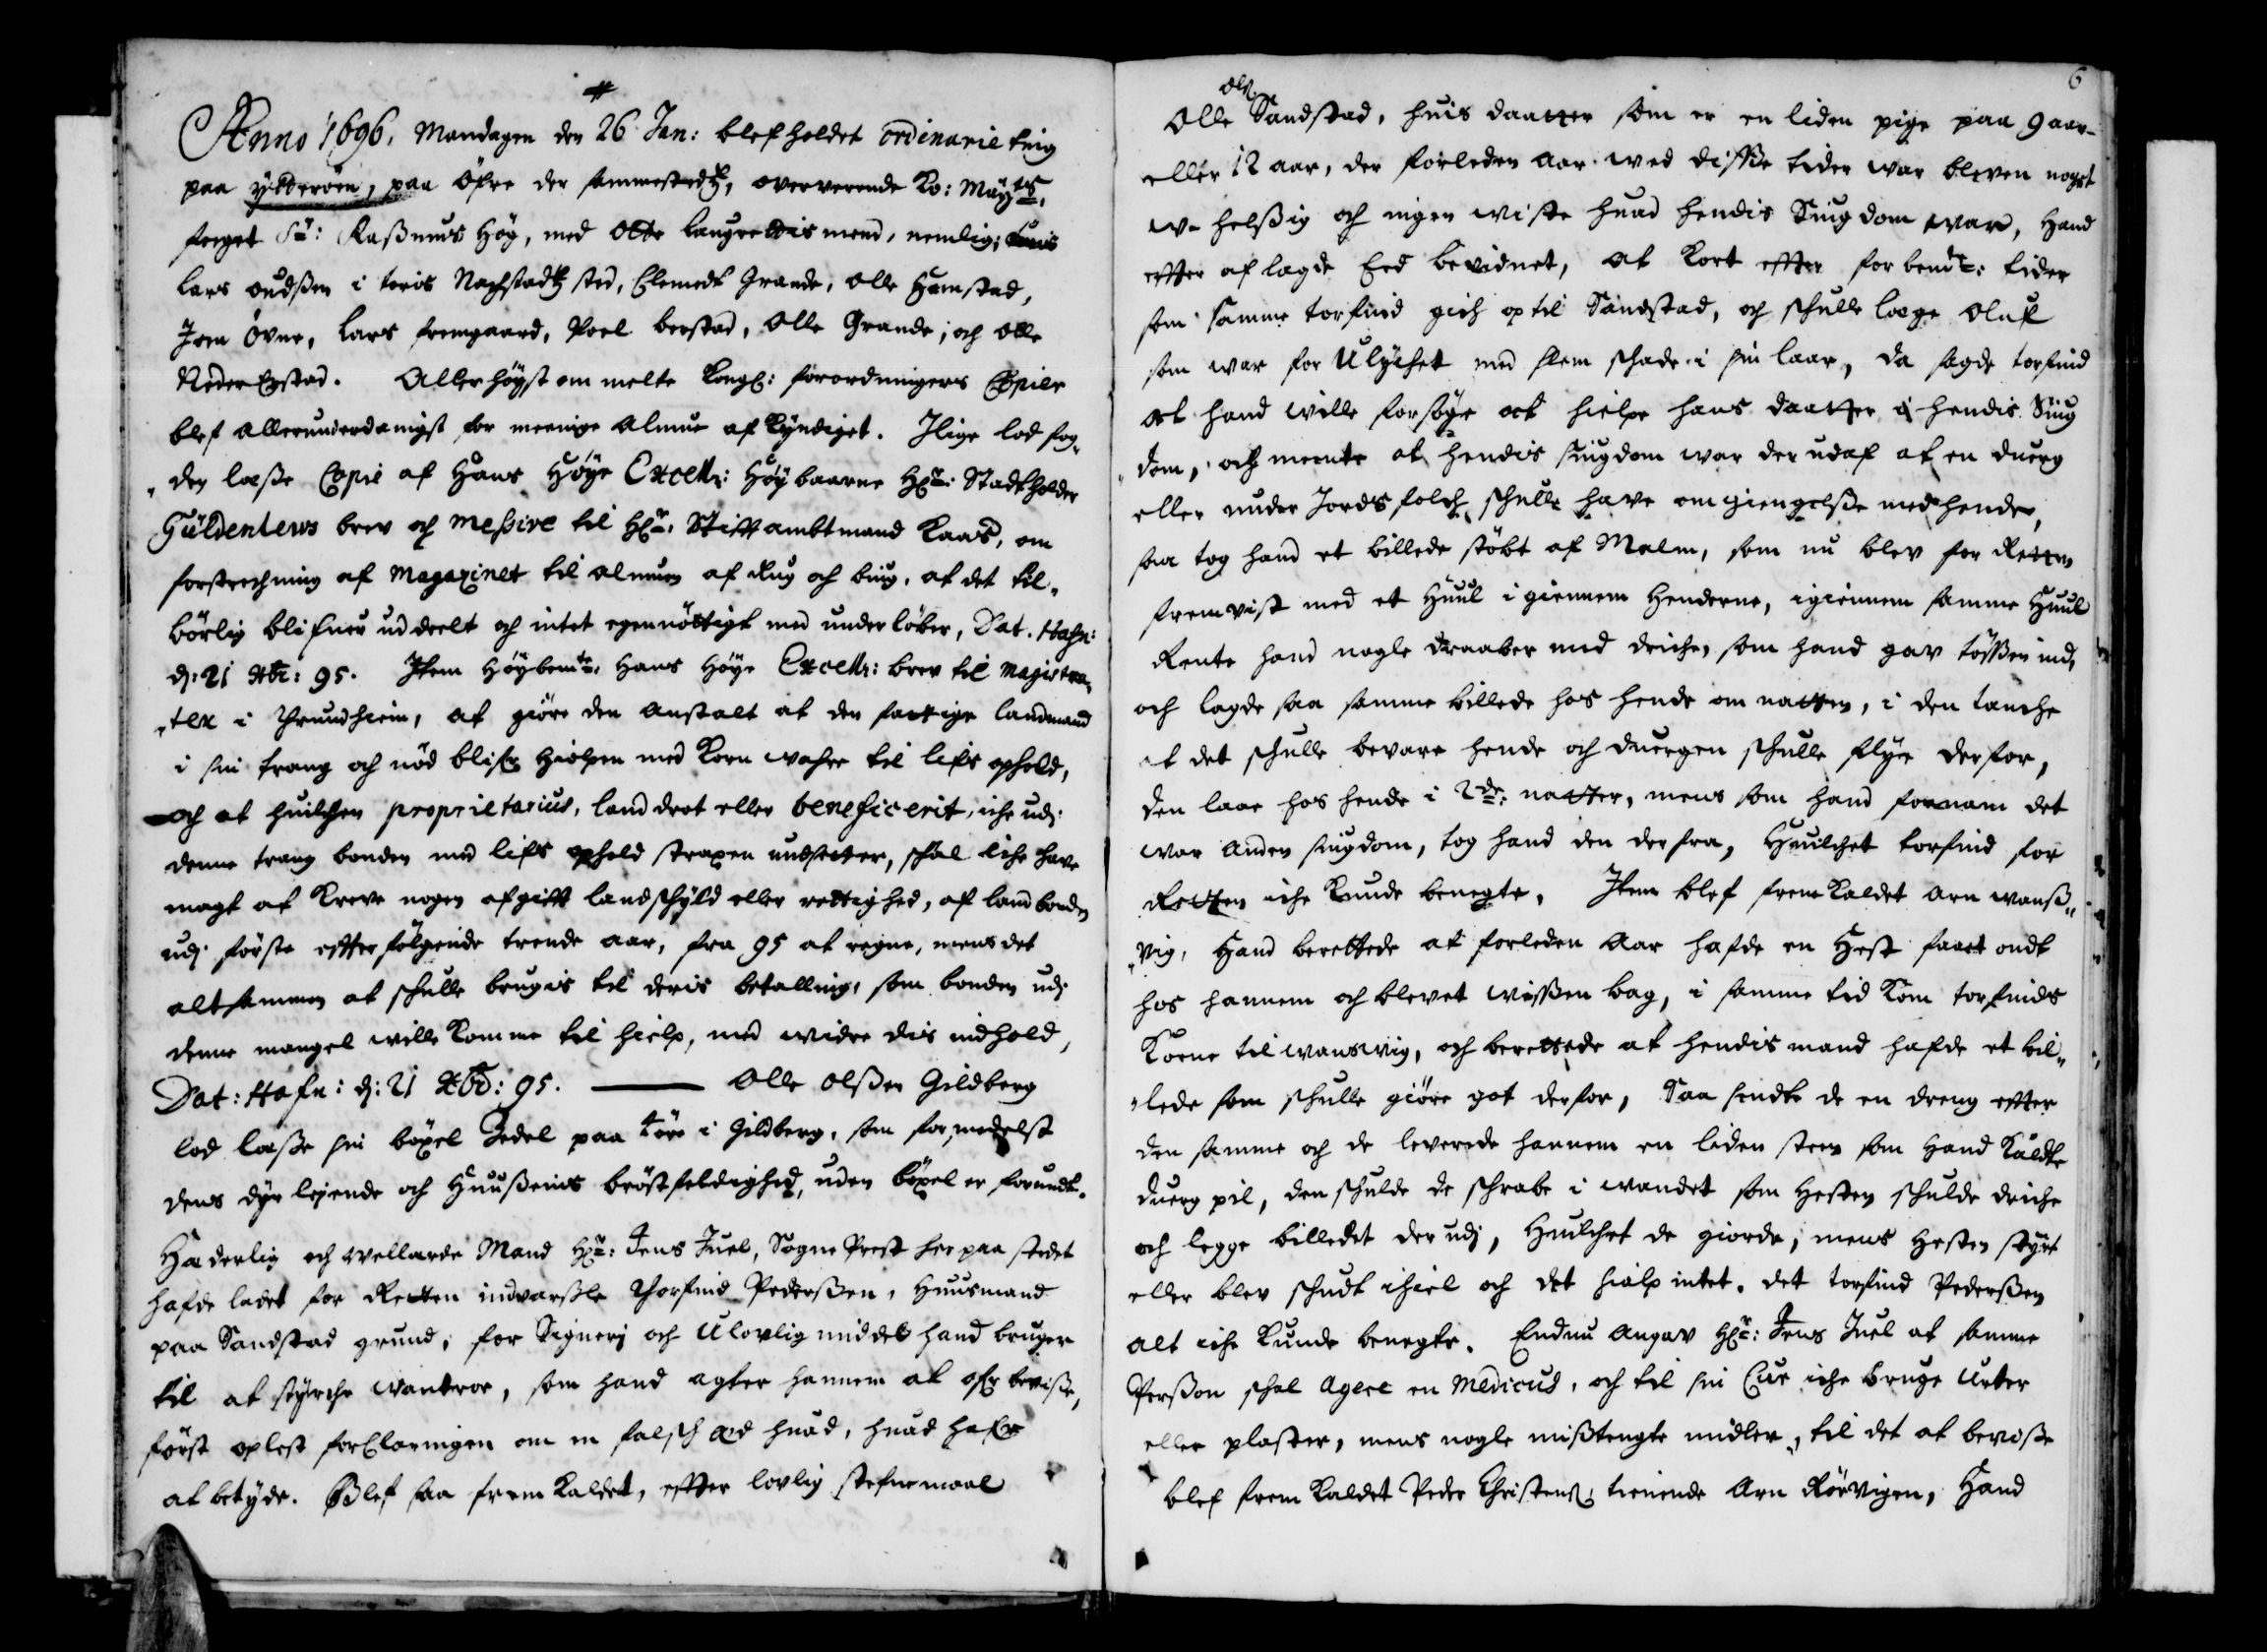 Anno 1696, Mandagen den 26 Jan: blef holdet ordinarie ting
paa ÿtterøen, paa Øfre der sammestedtz, oververende Ko: Maÿtz,
foeget Sr: Rasmus Høg, med Otte laugrettis mend, nemlig;
Lars oudßen i teris Nachstadtz sted, Clemedt Grande, Olle Hamstad,
Jon Øvne, Lars fremgaard, Poel berstad, Olle Grande; och Olle
Neder Egstad. Aller høyst om melte Kongl: forordningers Copier
blef allerunderdanigst for meenige Almue af Kyndiget. Jlige lod fog,
den læße Copie af Hans Høye Excell: Høÿbaarne Hr: Stadtholder
Güldenlews brev och meßive til Hr: Stifftambtmand Kaas, om
forstrechning af Magazinet til almuen af Rug och biug, at det til,
børlig blifver uddeelt och intet egennøttigt med underløber, Dat. Hafn:
dj: 21 Xbr: 95. Jtem Høybemte: Hans Høye Excell: brev til Magistra,
ter i Trundhiem, at giøre den Anstalt at den fattige landmand
i sin trang och nød blifer hiolpen med Korn wahre til lifs ophold,
och at huilchen proprietarius, land drot eller beneficerit, iche udj
denne trang bonden med lifs ophold straxen undsetter, schal iche have
magt at Kreve nogen afgifft landschÿld eller rettighed, af land bonden
udj første effterfølgende trende aar, fra 95 at regne, mens det
altsammen at schulle brugis til deris betalling, som bonden udj
denne mangel wille komme til hielp, med widre dis indhold,
Dat: Hafn: dj: 21 Xbr: 95. Olle Olßen Gildberg
lod læße sin bøxel Zedel paa i Gildberg, som formedelst
dens dyr lejende och Huußenis brøstfeldighed, uden bøxel er forundt.
Hæderlig och wellærde Mand Hr: Jens Juel, Sogne Prest her paa stedet
hafde ladet for Retten indvarßle Thorfind Pederßen, Huusmand
paa Sandstad grund, for Signerj och Ulovlig middel hand bruger
til at styrche wantroe, som hand agter hannem at ofr beviße,
først oplest forClaringen om en falsch æd huad, huad hafr
at betyde. Blef saa frem kaldet, effter lovlig stefnemaal
6
Ols.
Olle Sandstad, huis daatter som er en liden pige paa 9 aar
eller 12 aar, der forleden aar wed disße tider war bleven noget
w- helßig och ingen wiste huad hendis Siugdom war, Hand
effter aflagde Eed bevidnet, at kort effter forbemte: tider
som samme torfind gich op til Sandstad, och schulle læge Oluf
som war for Ulÿchet med slem schade i sin laar, da sagde torfind
at hand wille forsøge at hielpe hans daatter i hendis Siug
dom, och meente at hendis siugdom war der udaf at en duerg
eller under Jords folch schulle have omgiengelße med hende,
saa tog hand et billede støbt af Malm, som nu blev for Retten
fremvist med et Huul i giennem Henderne, igiennem samme Huul
Rente hand nogle draaber med driche, som hand gav tøßen ind,
och lagde saa samme billede hos hende om natten, i den tanche
at det schulle bevare hende och duergen schulle flye derfor,
den laae hos hende i 2de: natter, mens som hand fornam det
war anden siugdom, tog hand den derfra, Huilchet torfind for
Retten iche kunde benegte. Jtem blef frem kaldet Arn wanß,,
vig, Hand berettede at forleden Aar hafde en Hest faaet ondt
hos hannem och blevet wißen bag, i samme tid kom torfinds
Koene til wanswig, och berettede at hendis mand hafde et bil,,
lede som schulle giøre got derfor, Saa sendte de en dreng effter
den samme och de leverede hannem en liden steen som Hand kaldte
duerg pil, den schulde de schrabe i wandet som Hesten schulde driche
och legge billedet der udj, Huilchet de giorde, mens Hesten styrt
eller blev schudt ihiel och det hialp intet. det torfind Pederßen
alt iche kunde benegte. Endnu angav Hr: Jens Juel at samme
Perßon schal Agere en Medicus, och til sin Cur iche bruge Urter
eller plaster, mens nogle mißtengte midler, til det at beviße
blef frem kaldet Peder Christens. tienende Arn Rørvigen, Hand